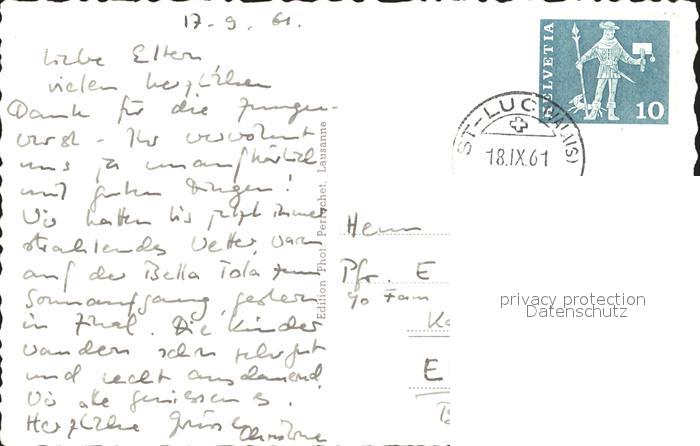 17.9.61.
Liebe Eltern
vielen herzlichen
Dank für die Zungen-
wurst - Ihr verwöhnt
uns ja unaufhörlich
mit guten Dingen!
Wir hatten bis jetzt immer
strahlendes Wetter, waren
auf der Bella Tola zum
Sonnaufgang, gestern
in Zinal. Die Kinder
wandern schon sehr gut
und recht ausdauernd.
Wir alle geniessen es.
Herzliche Grüsse Christine
Edition Phot. Perrochet, Lausanne
HELVETIA
10
ST-LUC (VALAIS)
18.IX.61
Herrn
Pfr. E
c/o Fam
K
E
privacy protection
Datenschutz